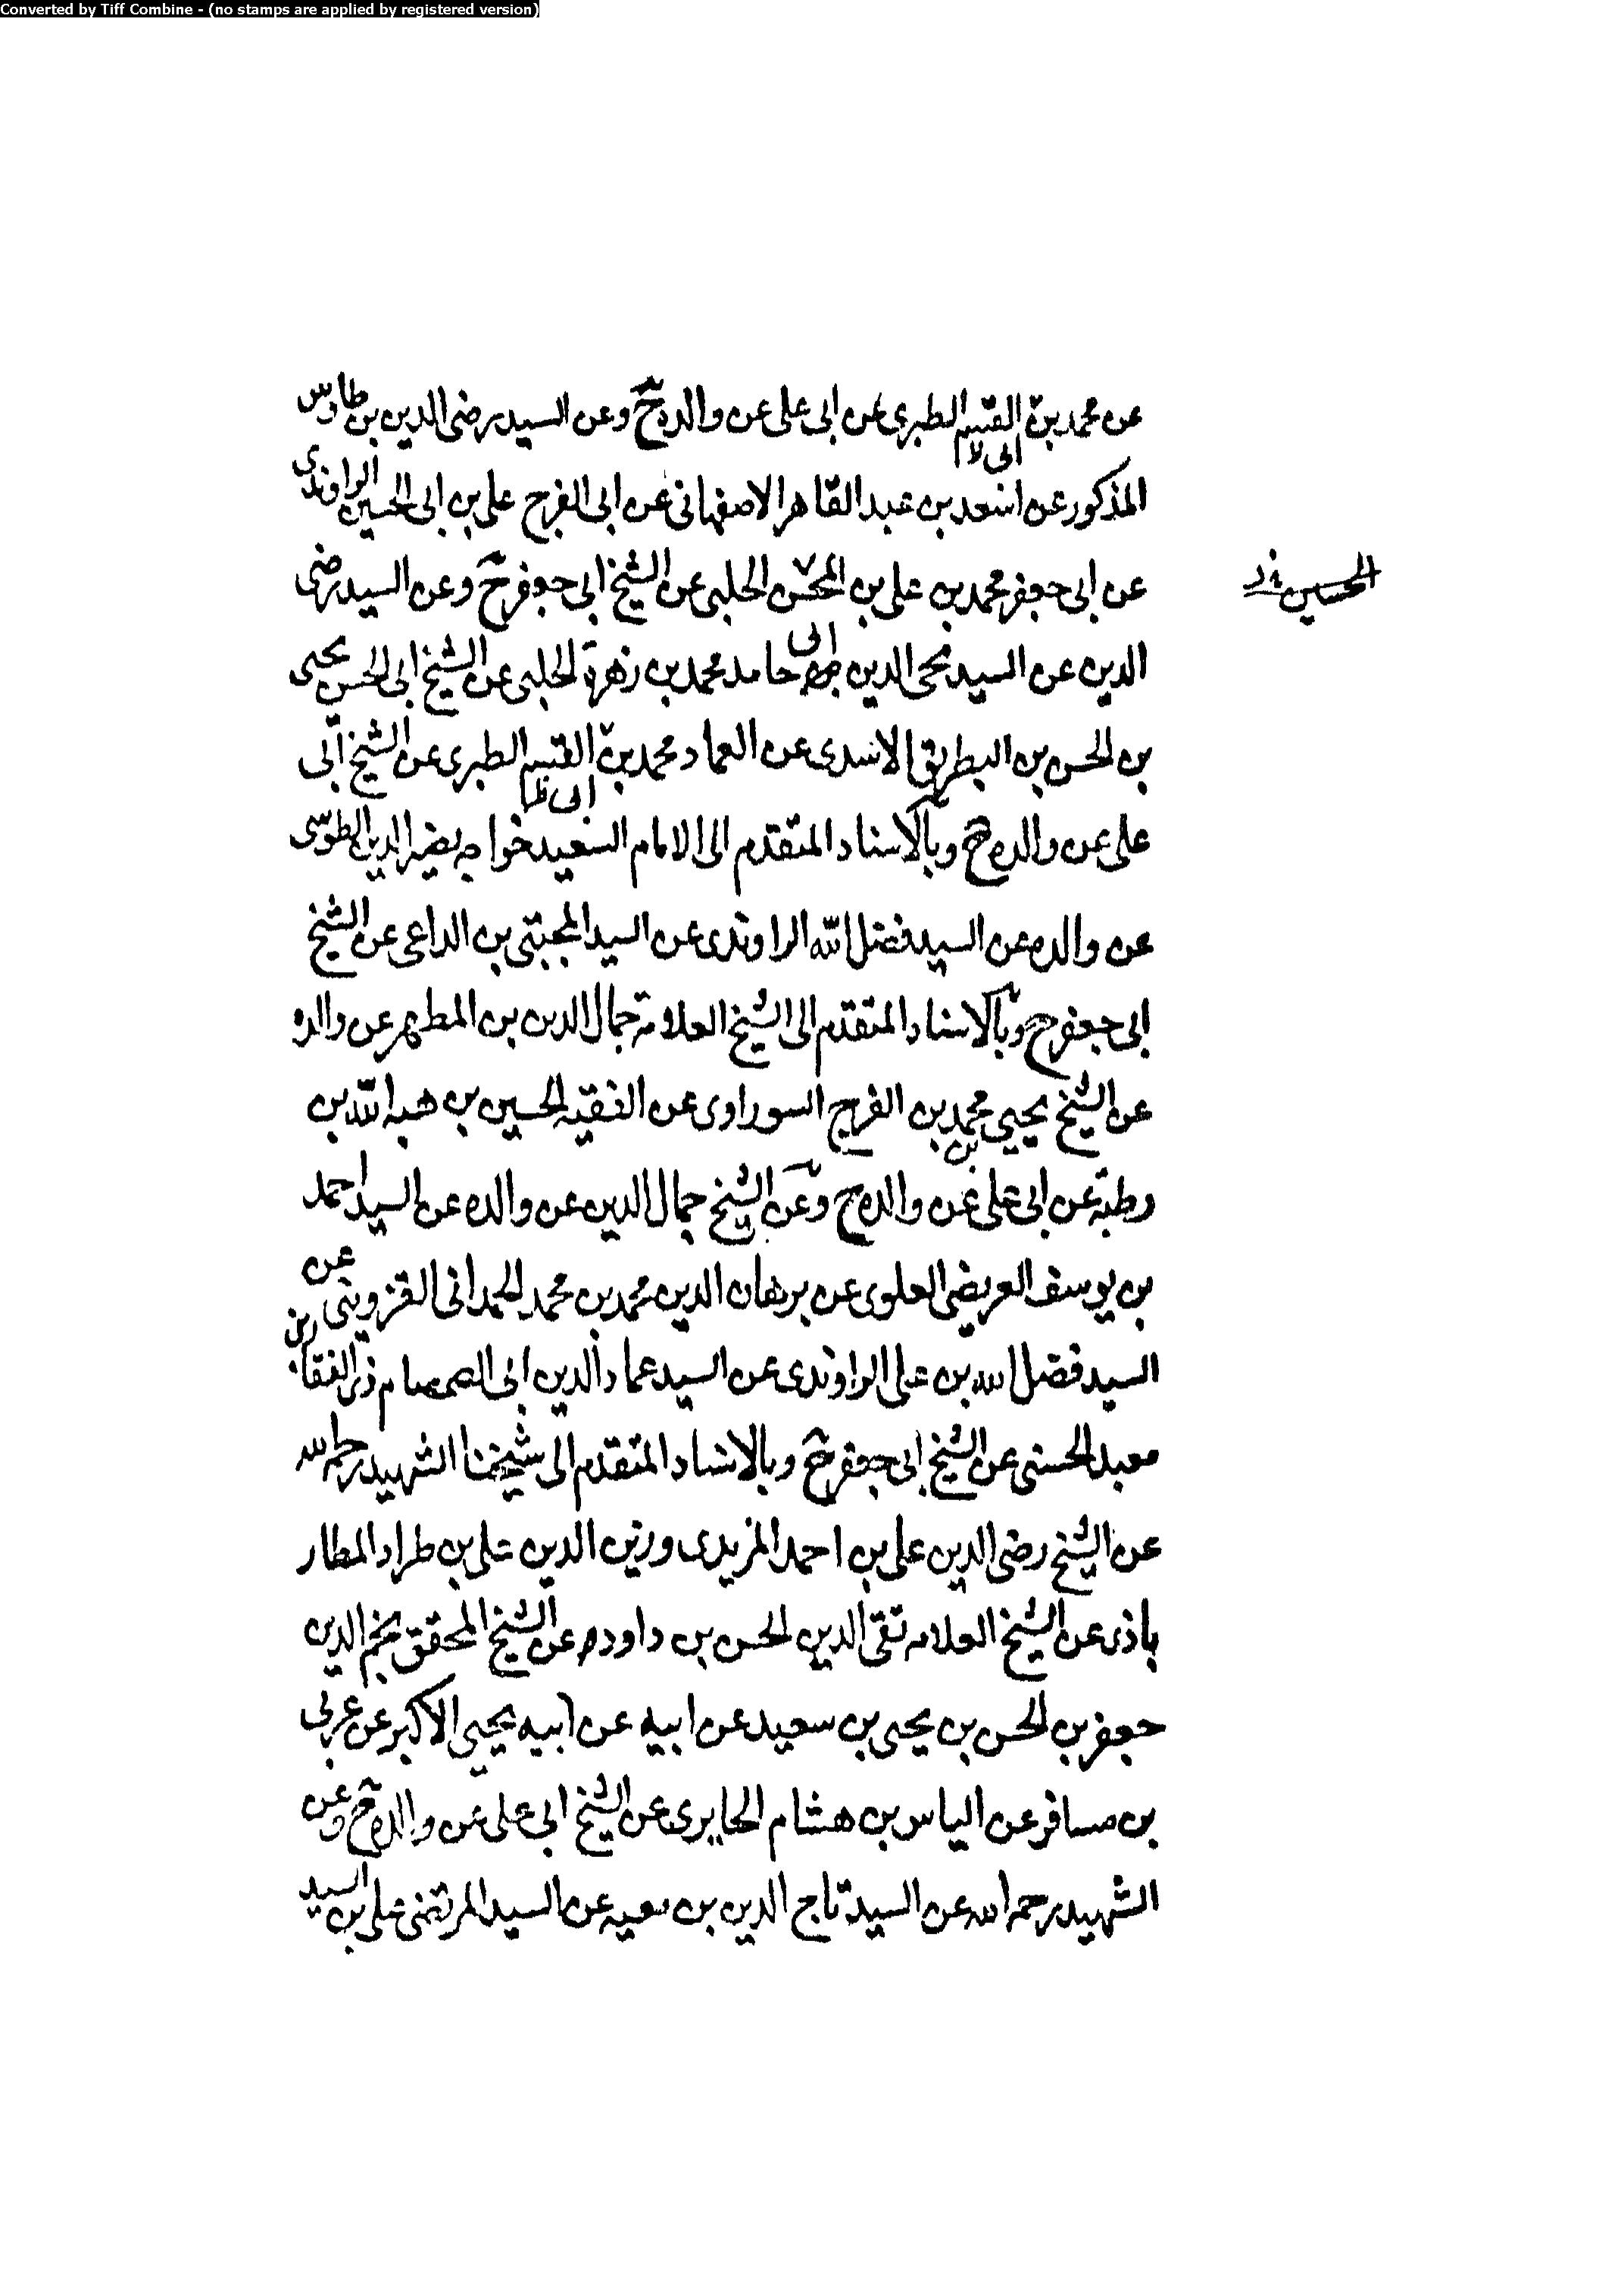 Converted by Tiff Combine - (no stamps are applied by registered version)
عن محمد بن القسم الطبرى عن ابى على عن والده ح وعن السيد رضى الدين بن طاوس
ابى
المذكور عن اسعد بن عبد القاهر الاصفهانى عن ابى الفرج على بن ابى الحسين الراوندى
عن ابى جعفر محمد بن على بن المحسن الحلبى عن الشيخ ابى جعفر ح وعن السيد رضى
الحسين
الدين عن السيد محى الدين ابى حامد محمد بن زهرة الحلبى عن الشيخ ابى الحسن يحيى
بن الحسن بن البطريق الاسدى عن العماد محمد بن القسم الطبرى عن الشيخ ابى
ابى
على عن والده ح وبالاسناد المتقدم الى الامام السعيد خواجه نصير الدين الطوسى
عن والده عن السيد فضل الله الراوندى عن السيد المجتبى بن الداعى عن الشيخ
ابى جعفر ح وبالاسناد المتقدم الى الشيخ العلامة جمال الدين بن المطهر عن والده
عن الشيخ يحيى محمد بن الفرج السوراوى عن الفقيه الحسين بن هبه الله بن
بن
رطبة عن ابى على عن والده ح وعن الشيخ جمال الدين عن والده عن السيد احمد
بن يوسف العريضى العلوى عن برهان الدين محمد بن محمد الحمدانى القزوينى عن
السيد فضل الله بن على الراوندى عن السيد عماد الدين ابى الصمصام ذى الفقار بن
معبد الحسنى عن الشيخ ابى جعفر ح وبالاسناد المتقدم الى شيخنا الشهيد رحمه الله
عن الشيخ رضى الدين على بن احمد المزيدى وزين الدين على بن طراد المطار
باذى عن الشيخ العلامه تقى الدين الحسن بن داود عن الشيخ المحقق نجم الدين
جعفر بن الحسن بن يحيى بن سعيد عن ابيه عن ابيه يحيى الاكبر عن عربى
بن مسافر عن الياس بن هشام الحايرى عن الشيخ ابى على عن والده ح وعن
الشهيد رحمه الله عن السيد تاج الدين بن معيه عن السيد المرتضى على بن السيد